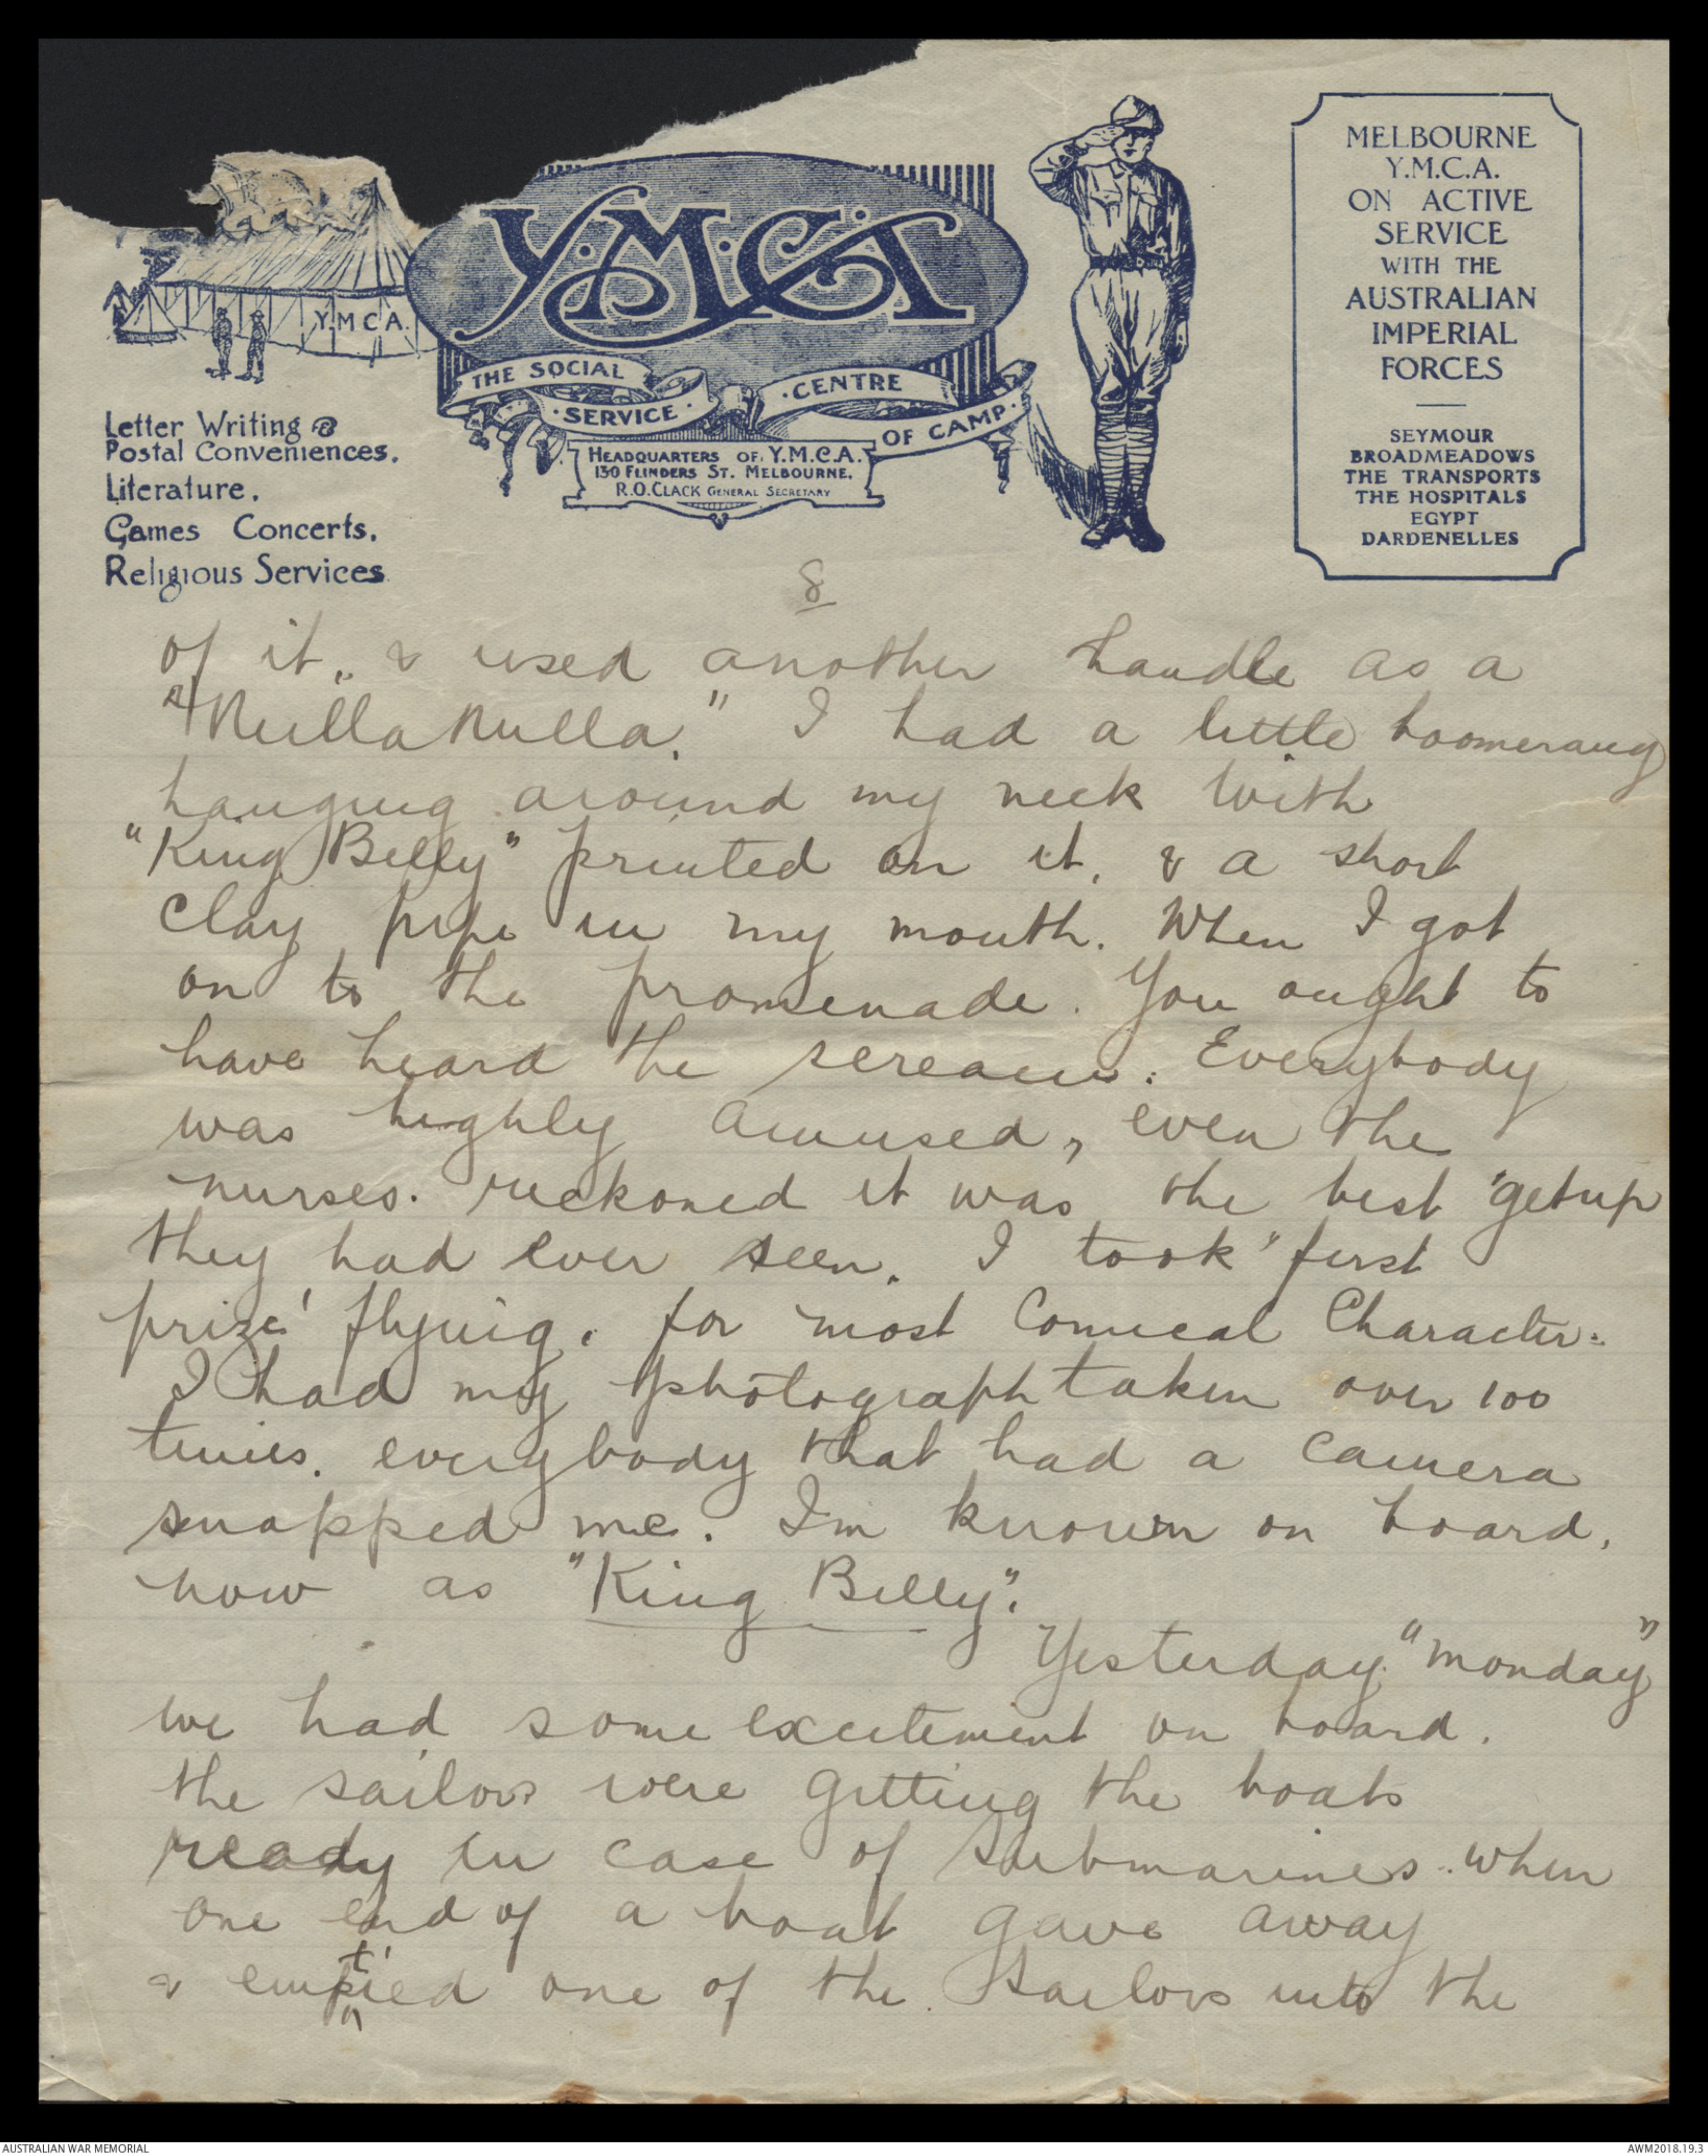 Y.M.C.A.
Y.M.C.A.
THE SOCIAL
SERVICE
CENTRE
OF CAMP
HEADQUARTERS OF Y.M.C.A.
130 FLINDERS ST. MELBOURNE.
R.O.CLACK GENERAL SECRETARY
Letter Writing &
Postal Conveniences.
Literature.
Games Concerts.
Religious Services
MELBOURNE
Y.M.C.A.
ON ACTIVE
SERVICE
WITH THE
AUSTRALIAN
IMPERIAL
FORCES
SEYMOUR
BROADMEADOWS
THE TRANSPORTS
THE HOSPITALS
EGYPT
DARDENELLES
8
of it,, & used another handle as a
"Nulla Nulla." I had a little boomerang
hanging around my neck with
"King Billy" printed on it, & a short
clay pipe in my mouth. When I got
on to the promenade. You ought to
have heard the screams. Everybody
was highly amused, even the
nurses. reckoned it was the best 'getup
they had ever seen. I took 'first
prize' flying. for most Comical Character.
I had my photograph taken over 100
times. everybody that had a camera
snapped me. I'm known on board,
now as "King Billy".
Yesterday "Monday"
we had some excitement on board.
the sailors were getting the boats
ready in case of submarines. when
one end of a boat gave away
& emptied one of the sailors into the
AUSTRALIAN WAR MEMORIAL
AWM2018.19.3